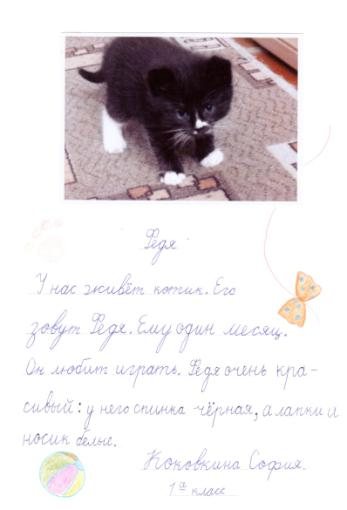 Федя
У нас живёт котик. Его
зовут Федя. Ему один месяц.
Он любит играть. Федя очень кра-
сивый: у него спинка чёрная, а лапки и
носик белые.
Коковкина София.
1а класс